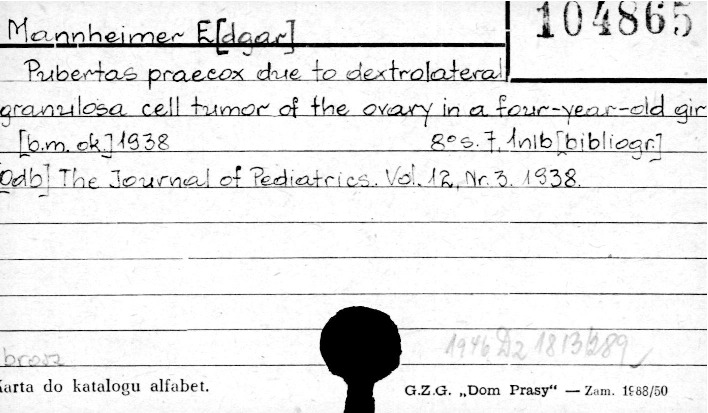 104865
Mannheimer E[dgar]
Pubertas praecox due to dextrolateral
granulosa cell tumor of the ovary in a four-year-old gir
[b.m. ok.] 1938 8° s. 7, 1nlb [bibliogr.]
[Odb] The Journal of Pediatrics. Vol. 12, Nr. 3. 1938.
1946 Dz 1813/289
brosz
Karta do katalogu alfabet.
G.Z.G. „Dom Prasy“ — Zam. 1988/50